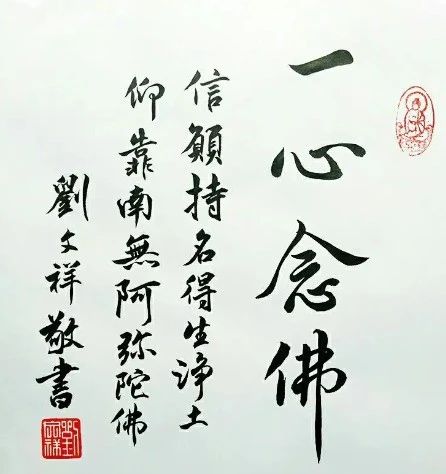 一心念佛
信願持名得生淨土
仰靠南無阿弥陀佛
劉文祥敬書
劉文祥